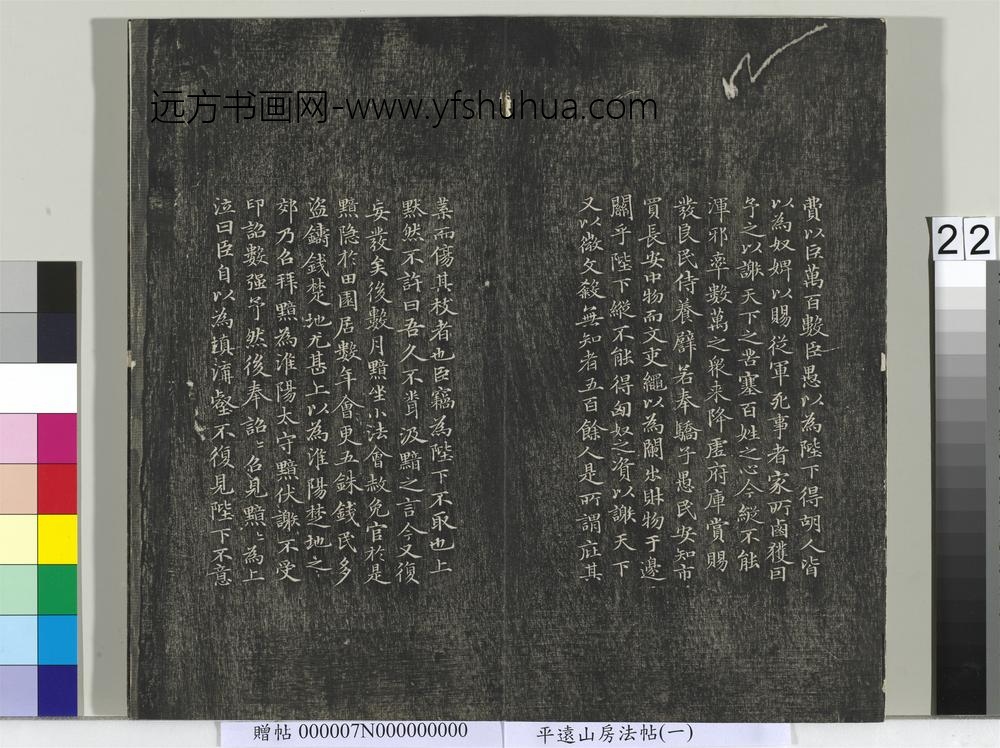 远方书画网-www.yfshuhua.com
22
費以巨萬百數臣愚以為陛下得胡人皆
以為奴婢以賜從軍死事者家所鹵獲因
予之以謝天下之苦塞百姓之心今縱不能
渾邪率數萬之衆来降虛府庫賞賜
發良民侍養譬若奉驕子愚民安知市
買長安中物而文吏繩以為闌出財物于邊
關乎陛下縱不能得匈奴之資以謝天下
又以微文殺無知者五百餘人是所謂庇其
葉而傷其枝者也臣竊為陛下不取也上
默然不許曰吾久不聞汲黯之言今又復
妄發矣後數月黯坐小法會赦免官於是
黯隐於田園居數年會更五銖錢民多
盜鑄錢楚地尤甚上以為淮陽楚地之
郊乃召拜黯為淮陽太守黯伏謝不受
印詔數强予然後奉詔〻召見黯〻為上
泣曰臣自以為填溝壑不復見陛下不意
贈帖 000007N000000000
平遠山房法帖(一)